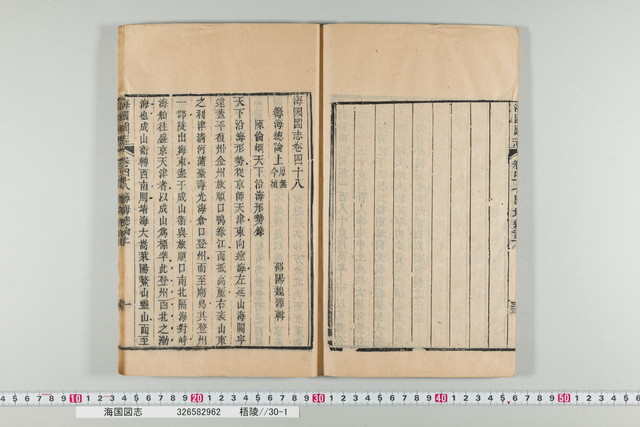 海國圖志卷四十八
邵陽魏源輯
籌海總論上 原無今補
陳倫烱天下沿海形勢錄
天下沿海形勢從京師天津東向遼海左延山海關寧
遠蓋平復州金州旅順口鴨綠江而抵高麗右袤山東
之利津清河蒲臺壽光海倉口登州而至廟島其登州
一郡陡出海東盡于成山衛與旅順口南北隔海對峙
海舶往盛京天津者以成山爲標準也登州西北之渤
海也成山衛轉西南則靖海大嵩萊陽鰲山靈山而至
海國圖志
卷四十八 籌海總論上
一
海國圖志
海国図志 326582962 梧陵//30-1